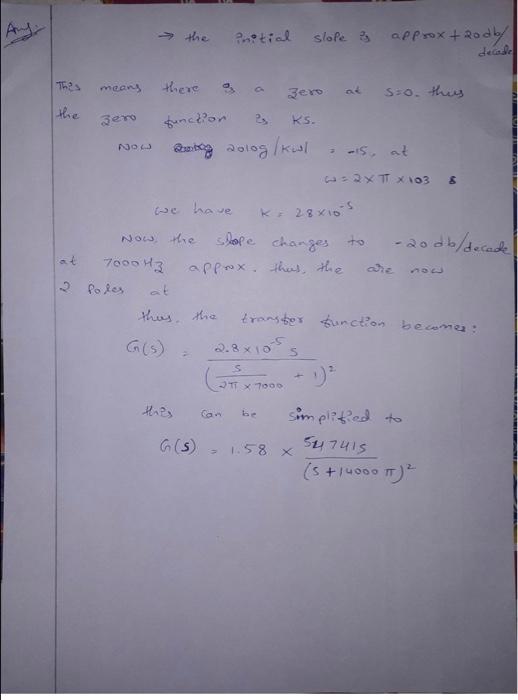 Ans:
→ the initial slope is approx + 20 db/decade
This means there is a zero at s=0. thus
the zero function is KS.
Now 20log|Kw| = -15, at
ω = 2×π×103
we have K = 28×10^-5
Now, the slope changes to -20 db/decade
at 7000Hz approx. thus, the are now
2 Poles at
thus, the transfer function becomes:
G(s) = 2.8×10^-5 s / (s/(2π×7000) + 1)^2
this can be simplified to
G(s) = 1.58 × 54741s / (s + 14000π)^2